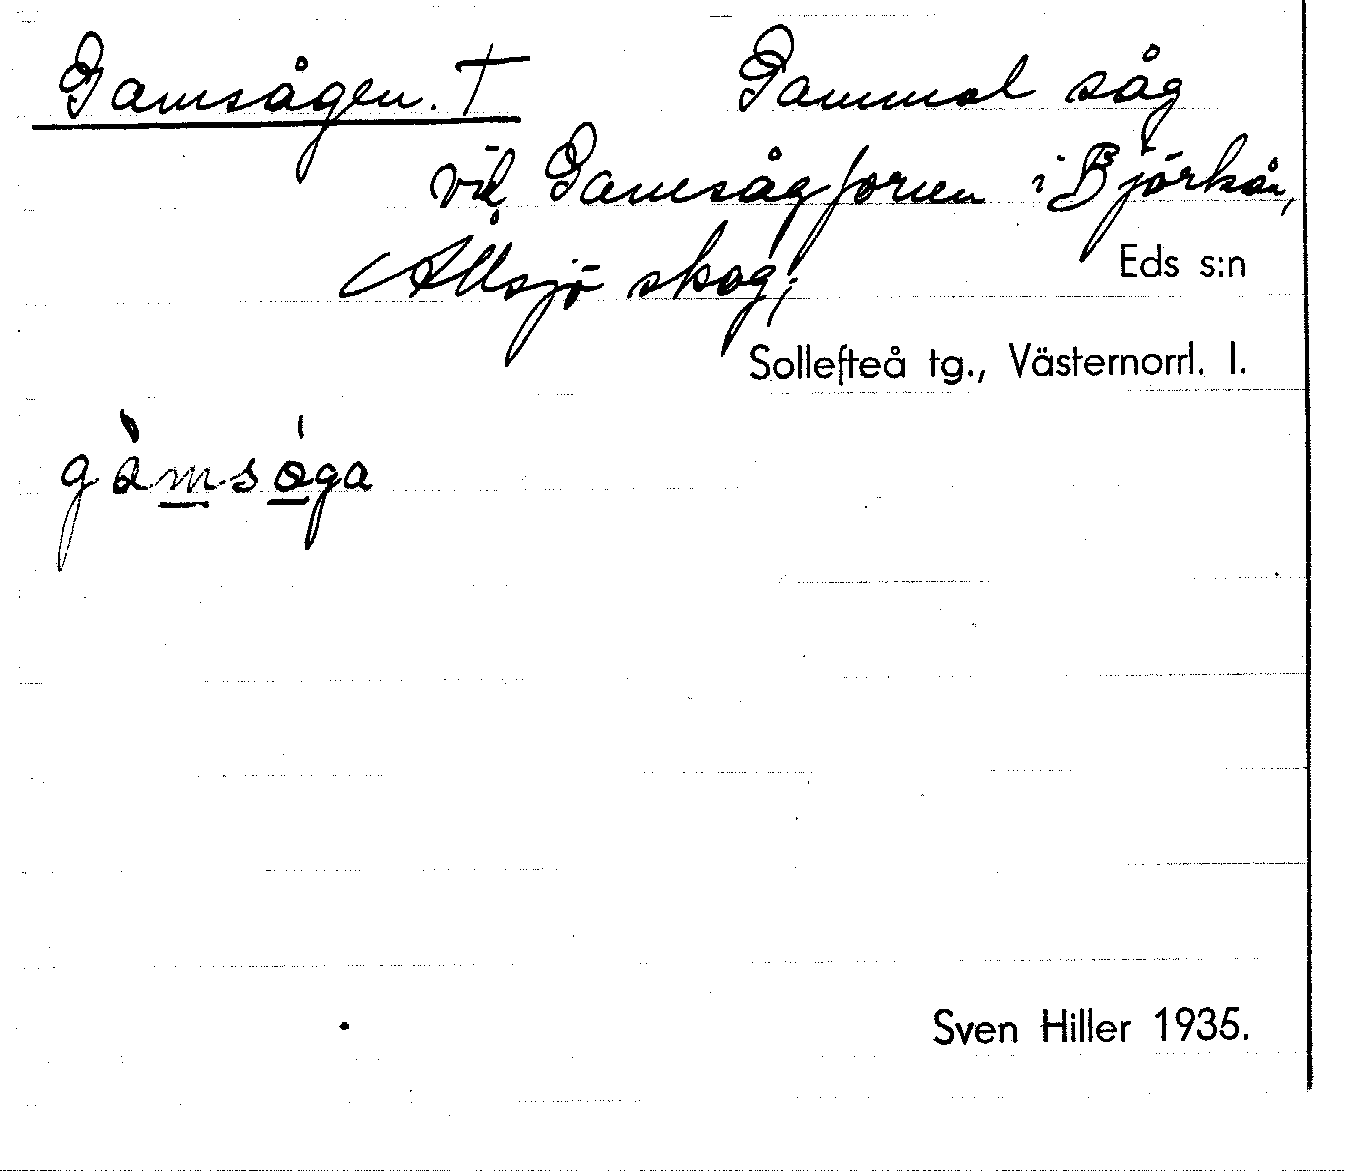 Gamsågen. † Gammal såg
vid Gamsågforsen i Björkån,
Allsjö skog, Eds s:n
Sollefteå tg., Västernorrl. l.
gàmsåga
Sven Hiller 1935.